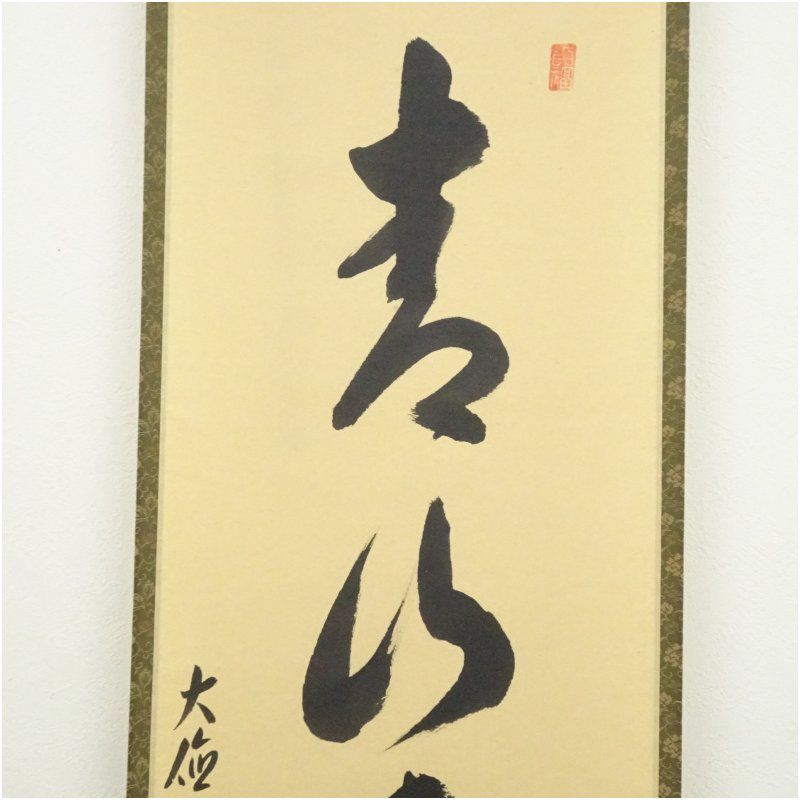 青山
大徳